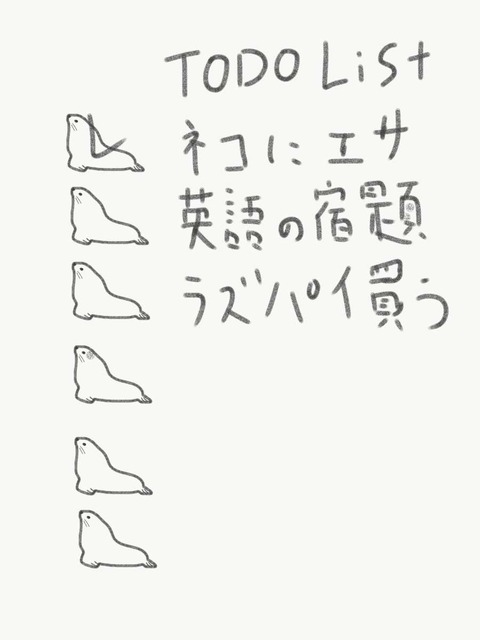 TODO List
ネコにエサ
英語の宿題
ラズパイ買う